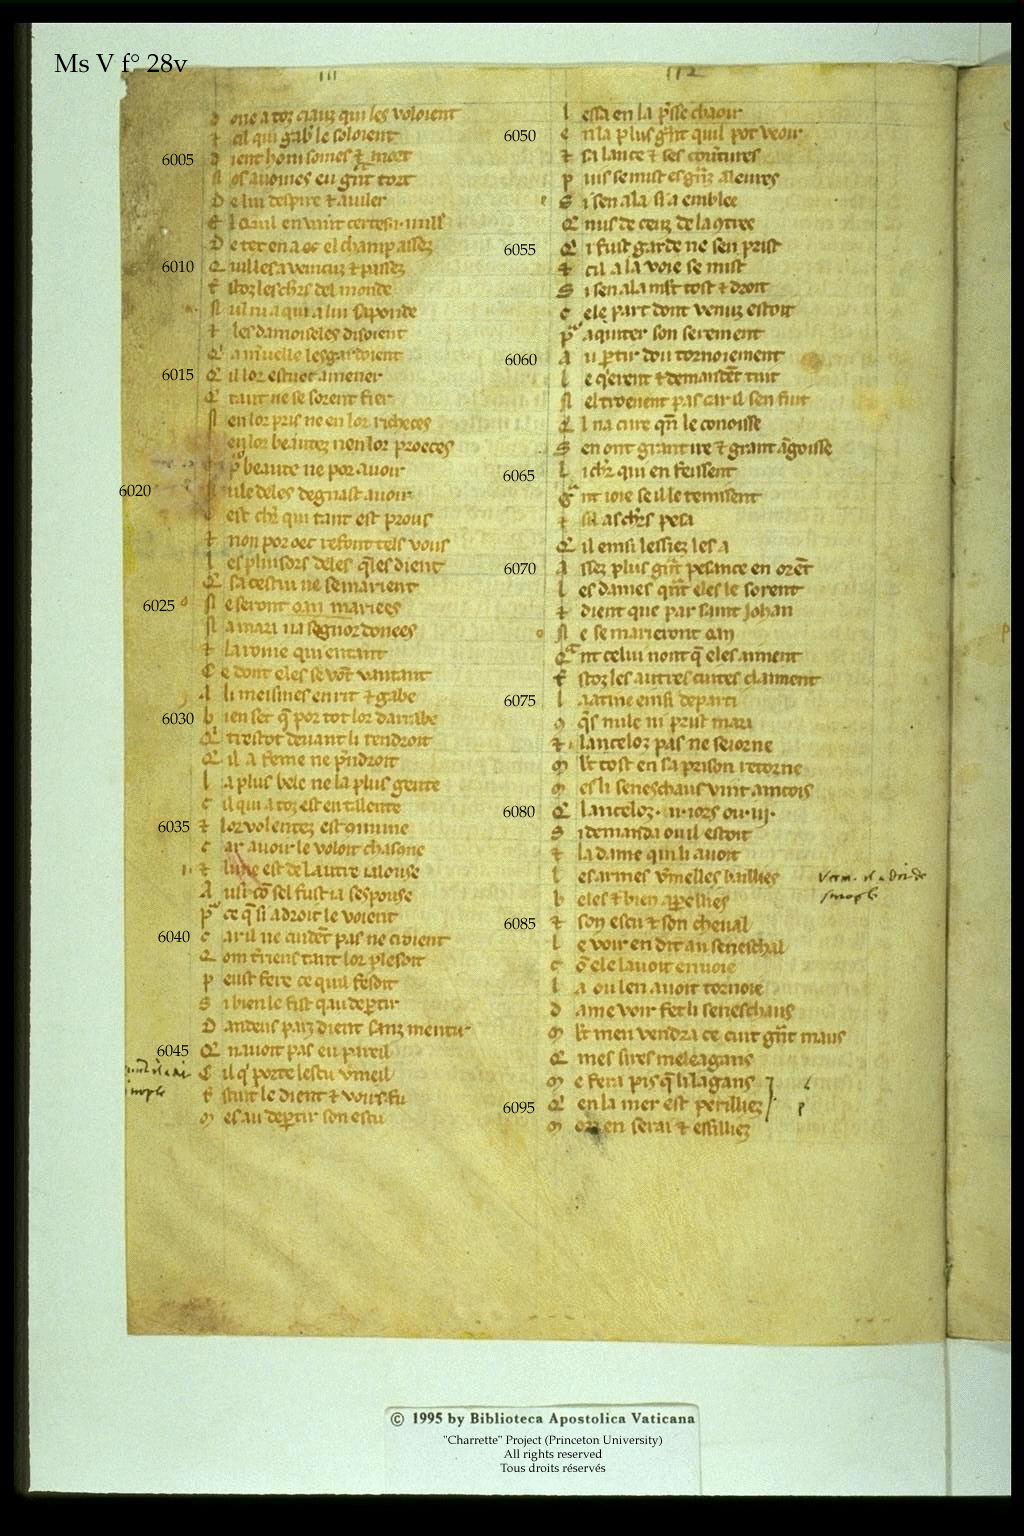 Ms V f° 28v
III
112
one a toz ciauz qui les voloient
⁊ cil qui gab' le soloient
6005 d ient honi somes ⁊ mort
N os avomes eu gñt tort
D e lui despire ⁊ aviler
D e ter en a oc el champ assez
6010 Q uil les a veincuz ⁊ passez
t stoz les ch̅rs del monde
N ul ni a qui a lui saponde
⁊ les damoiseles disoient
Q a m̅uelle lesgardoient
6015 Q il lor estuet amener
Q tant ne se sorent fier
N en lor pris ne en lor richeces
N en lor beautez nen lor proeces
p beaute ne por avoir
6020 N ule deles degnast avoir
C est ch̅r qui tant est prous
⁊ non por oec refont tels vous
l es plusors deles q̅les dient
Q sa cestui ne se marient
6025 N e seront oan mariees
N a mari na segnor donees
⁊ la roine qui entant
C e dont eles se vōt vantant
A li meisines en rit ⁊ gabe
6030 b ien set q̅ por tot lor darrabe
Q trestot devant li tendroit
Q il a feme ne p̅ndroit
l a plus bele ne la plus gente
c il qui a toz est en tilente
6035 ⁊ lor volentez est 9mune
c ar avoir le voloit chascune
⁊ lune est de lautre ialouse
A usi cō sel fust ia sespouse
p ce q̅ si adroit le voient
6040 c ar il ne cuidēt pas ne croient
Q om t̅riens tant lor plesoit
p eust fere ce quil fesoit
S i bien le fist qau dep̅tir
D andeus parz dient sanz mentir
6045 Q navoit pas eu pareil
C il q' porte lescu v̅meil
t stuit le dient ⁊ voirs fu
m es au dep̅tir son escu
l essa en la p̅sse chaoir
6050 e n la plus gr̅nt quil pot veoir
⁊ sa lance ⁊ ses cov̅tures
p uis se mist es gr̅nz aleures
S i sen ala si a emblee
Q nus de ceuz de la 9tree
6055 Q i fust garde ne sen prist
⁊ cil a la voie se mist
S i sen ala mlt tost ⁊ droit
c ele part dont venuz estoit
p aquiter son serement
6060 A u p̅tir dou tornoiement
l e q̅erent ⁊ demandēt tuit
N el troevent pas car il sen fuit
Q l na cure qn̅ le conoisse
S en ont grant ire ⁊ grant āgoisse
6065 l i ch̅r qui en feissent
Gr nt ioie se il le tenissent
⁊ sil as ch̅rs pesa
Q il einsi lessiez les a
6070 A ssez plus gr̅nt pesance en orēt
l es dames qn̅t eles le sorent
⁊ dient que par saint Johan
N e se marieront oan
Q nt celui nont q̅ eles aiment
t stoz les autres cuites claiment
6075 l aatine einsi departi
9 q̅s nule ni prist mari
⁊ lanceloz pas ne seiorne
M lt tost en sa prison retorne
m es li seneschaus vint aincois
6080 Q lanceloz .ii. iors ou .iij.
S i demanda ou il estoit
⁊ la dame qui li avoit
l es armes v̅meilles baillies
b eles ⁊ bien apellies
6085 ⁊ son escu ⁊ son cheval
l e voir en dit au seneschal
c ō ele lavoit envoie
l a ou len avoit tornoie
d ame voir fet li seneschaus
M lt men vendra ce cuit gr̅nt maus
Q mes sires meleagans
M e fera pis q̅ li lagans
6095 Q en la mer est perilliez
M orz en serai ⁊ essilliez
© 1995 by Biblioteca Apostolica Vaticana
"Charrette" Project (Princeton University)
All rights reserved
Tous droits réservés